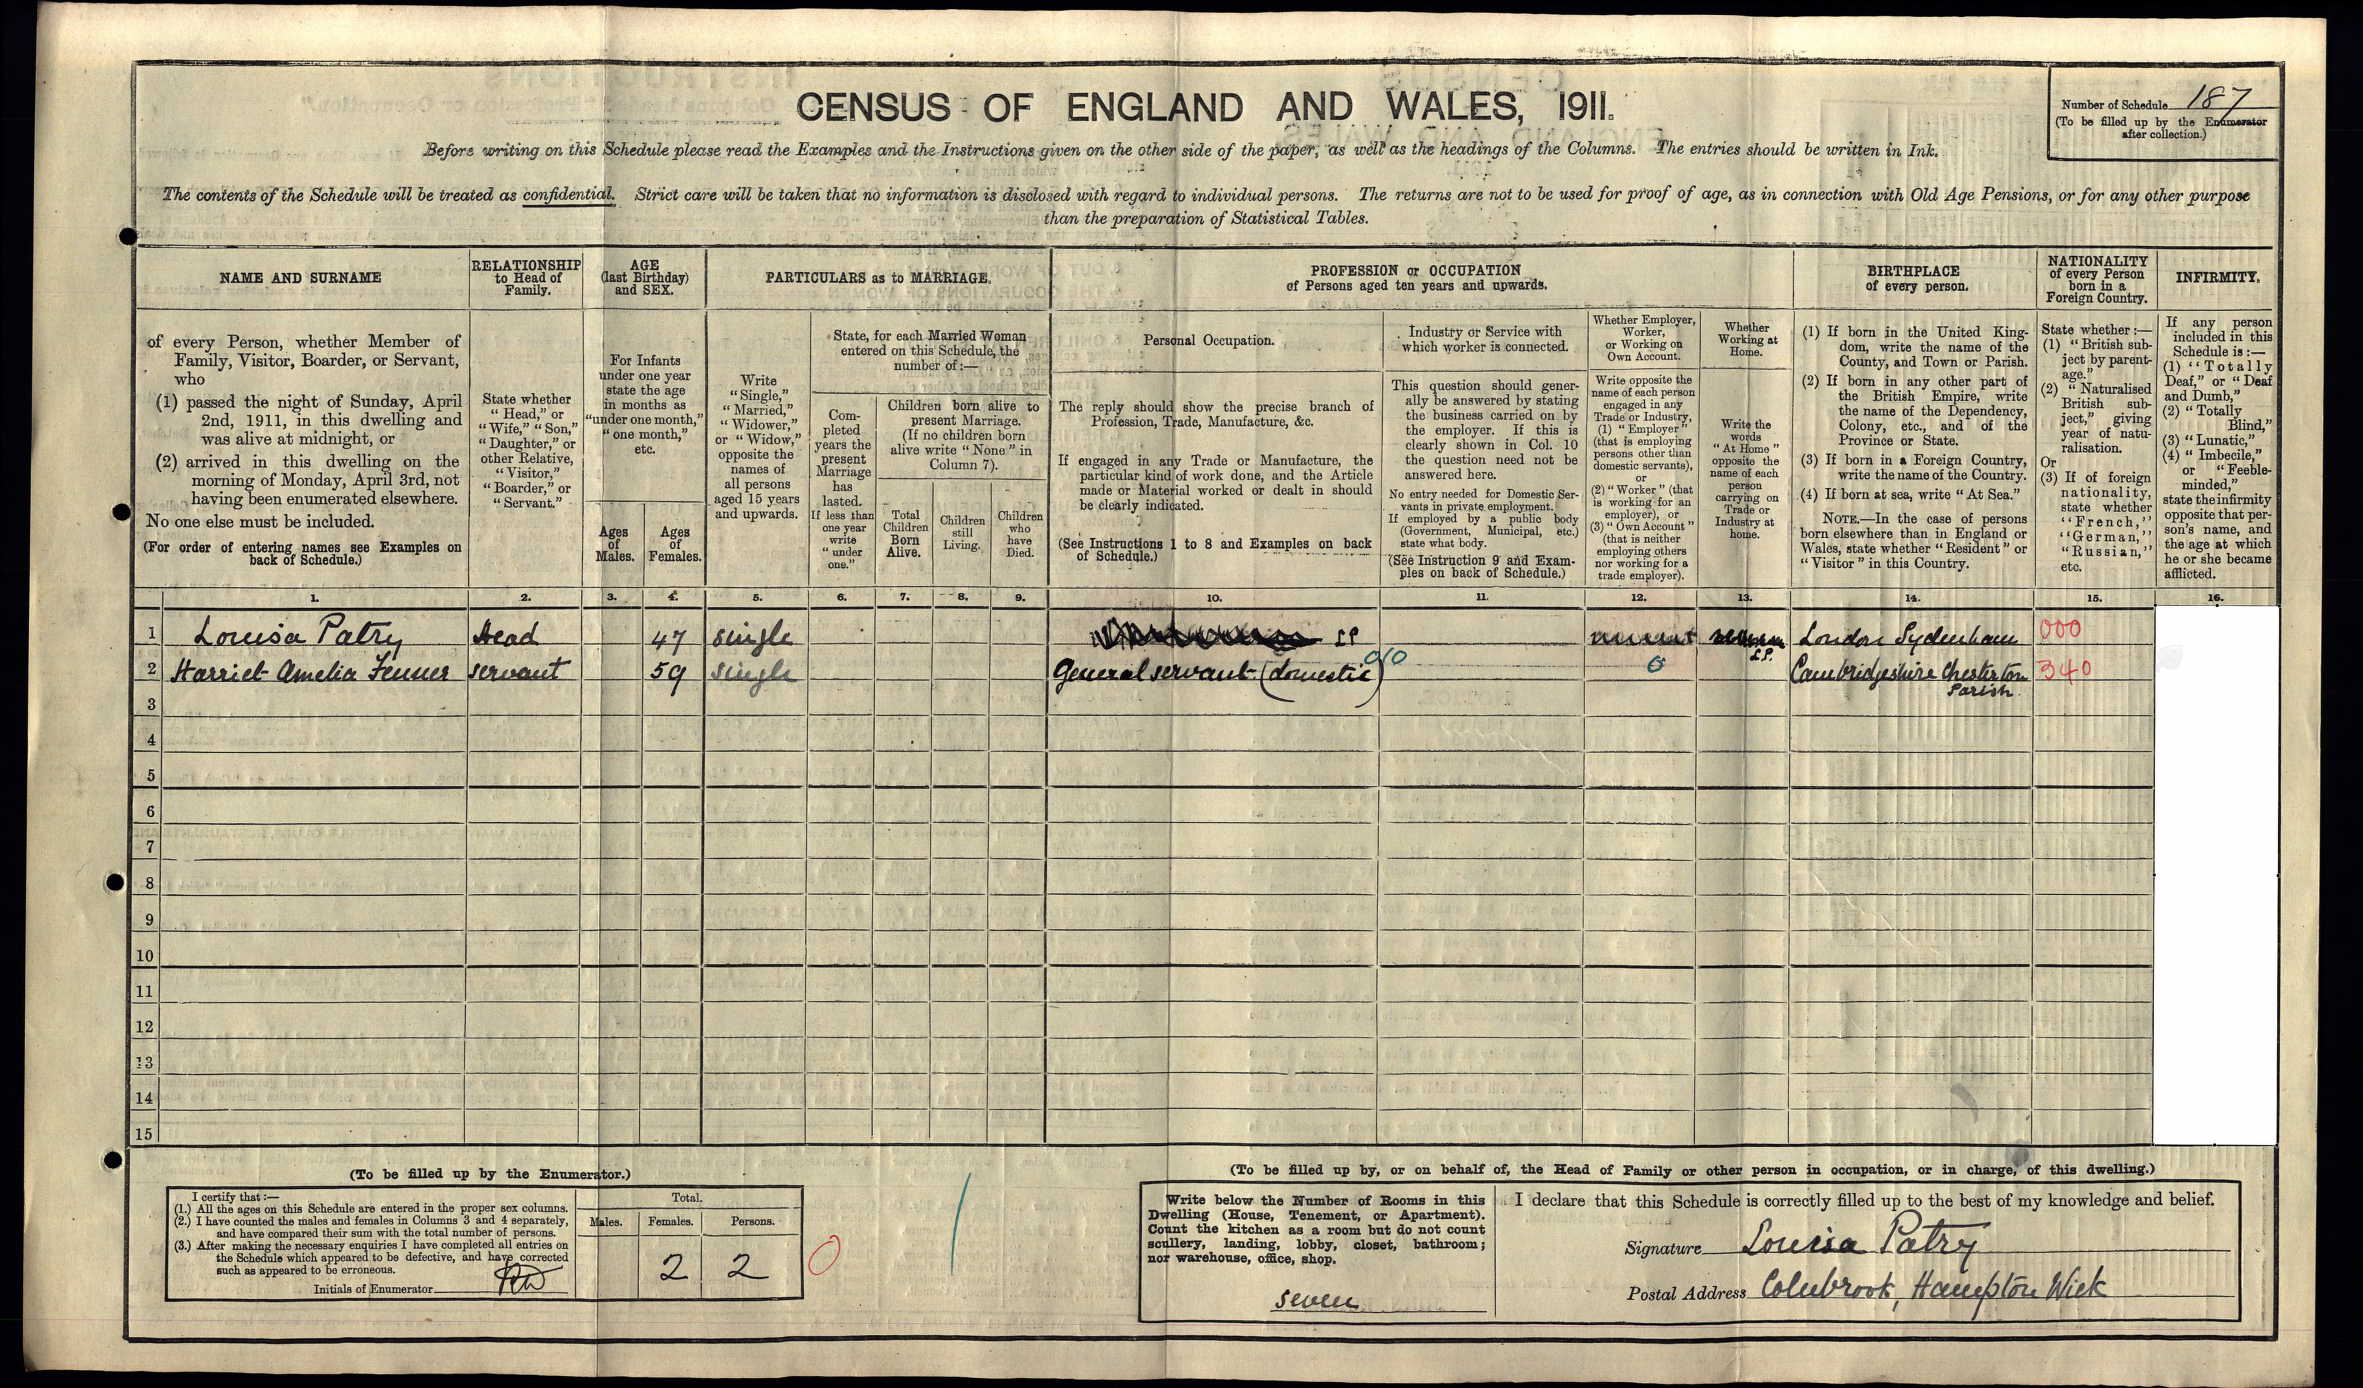 CENSUS OF ENGLAND AND WALES, 1911.
Number of Schedule 187
(To be filled up by the Enumerator
after collection.)
Before writing on this Schedule please read the Examples and the Instructions given on the other side of the paper, as well as the headings of the Columns. The entries should be written in Ink.
The contents of the Schedule will be treated as confidential. Strict care will be taken that no information is disclosed with regard to individual persons. The returns are not to be used for proof of age, as in connection with Old Age Pensions, or for any other purpose
than the preparation of Statistical Tables.
NAME AND SURNAME
of every Person, whether Member of
Family, Visitor, Boarder, or Servant,
who
(1) passed the night of Sunday, April
2nd, 1911, in this dwelling and
was alive at midnight, or
(2) arrived in this dwelling on the
morning of Monday, April 3rd, not
having been enumerated elsewhere.
No one else must be included.
(For order of entering names see Examples on
back of Schedule.)
RELATIONSHIP
to Head of
Family.
State whether
"Head," or
"Wife," "Son,"
"Daughter," or
other Relative,
"Visitor,"
"Boarder," or
"Servant."
AGE
(last Birthday)
and SEX.
For Infants
under one year
state the age
in months as
"under one month,"
"one month,"
etc.
Ages
of
Males.
Ages
of
Females.
PARTICULARS as to MARRIAGE.
Write
"Single,"
"Married,"
"Widower,"
or "Widow,"
opposite the
names of
all persons
aged 15 years
and upwards.
State, for each Married Woman
entered on this Schedule, the
number of:—
Com-
pleted
years the
present
Marriage
has
lasted.
If less than
one year
write
"under
one."
Children born alive to
present Marriage.
(If no children born
alive write "None" in
Column 7).
Total
Children
Born
Alive.
Children
still
Living.
Children
who
have
Died.
PROFESSION or OCCUPATION
of Persons aged ten years and upwards.
Personal Occupation.
The reply should show the precise branch of
Profession, Trade, Manufacture, &c.
If engaged in any Trade or Manufacture, the
particular kind of work done, and the Article
made or Material worked or dealt in should
be clearly indicated.
(See Instructions 1 to 8 and Examples on back
of Schedule.)
Industry or Service with
which worker is connected.
This question should gener-
ally be answered by stating
the business carried on by
the employer. If this is
clearly shown in Col. 10
the question need not be
answered here.
No entry needed for Domestic Ser-
vants in private employment.
If employed by a public body
(Government, Municipal, etc.)
state what body.
(See Instruction 9 and Exam-
ples on back of Schedule.)
Whether Employer,
Worker,
or Working on
Own Account.
Write opposite the
name of each person
engaged in any
Trade or Industry,
(1) "Employer"
(that is employing
persons other than
domestic servants),
or
(2) "Worker" (that
is working for an
employer), or
(3) "Own Account"
(that is neither
employing others
nor working for a
trade employer).
Whether
Working at
Home.
Write the
words
"At Home"
opposite the
name of each
person
carrying on
Trade or
Industry at
home.
BIRTHPLACE
of every person.
(1) If born in the United King-
dom, write the name of the
County, and Town or Parish.
(2) If born in any other part of
the British Empire, write
the name of the Dependency,
Colony, etc., and of the
Province or State.
(3) If born in a Foreign Country,
write the name of the Country.
(4) If born at sea, write "At Sea."
NOTE.—In the case of persons
born elsewhere than in England or
Wales, state whether "Resident" or
"Visitor" in this Country.
NATIONALITY
of every Person
born in a
Foreign Country.
State whether:—
(1) "British sub-
ject by parent-
age."
(2) "Naturalised
British sub-
ject," giving
year of natu-
ralisation.
Or
(3) If of foreign
nationality,
state whether
"French,"
"German,"
"Russian,"
etc.
INFIRMITY.
If any person
included in this
Schedule is:—
(1) "Totally
Deaf," or "Deaf
and Dumb,"
(2) "Totally
Blind,"
(3) "Lunatic,"
(4) "Imbecile,"
or "Feeble-
minded,"
state the infirmity
opposite that per-
son's name, and
the age at which
he or she became
afflicted.
1. 2. 3. 4. 5. 6. 7. 8. 9. 10. 11. 12. 13. 14. 15. 16.
1 Louisa Patry Head 47 single L P L.P. London Sydenham 000
2 Harriet Amelia Fenner servant 59 single General servant (domestic) 010 0 Cambridgeshire Chesterton 340
Parish
3
4
5
6
7
8
9
10
11
12
13
14
15
(To be filled up by the Enumerator.)
I certify that:—
(1.) All the ages on this Schedule are entered in the proper sex columns.
(2.) I have counted the males and females in Columns 3 and 4 separately,
and have compared their sum with the total number of persons.
(3.) After making the necessary enquiries I have completed all entries on
the Schedule which appeared to be defective, and have corrected
such as appeared to be erroneous.
Initials of Enumerator
Total.
Males. Females. Persons.
2 2
0
(To be filled up by, or on behalf of, the Head of Family or other person in occupation, or in charge, of this dwelling.)
Write below the Number of Rooms in this
Dwelling (House, Tenement, or Apartment).
Count the kitchen as a room but do not count
scullery, landing, lobby, closet, bathroom;
nor warehouse, office, shop.
seven
I declare that this Schedule is correctly filled up to the best of my knowledge and belief.
Signature Louisa Patry
Postal Address Colnbrook, Hampton Wick